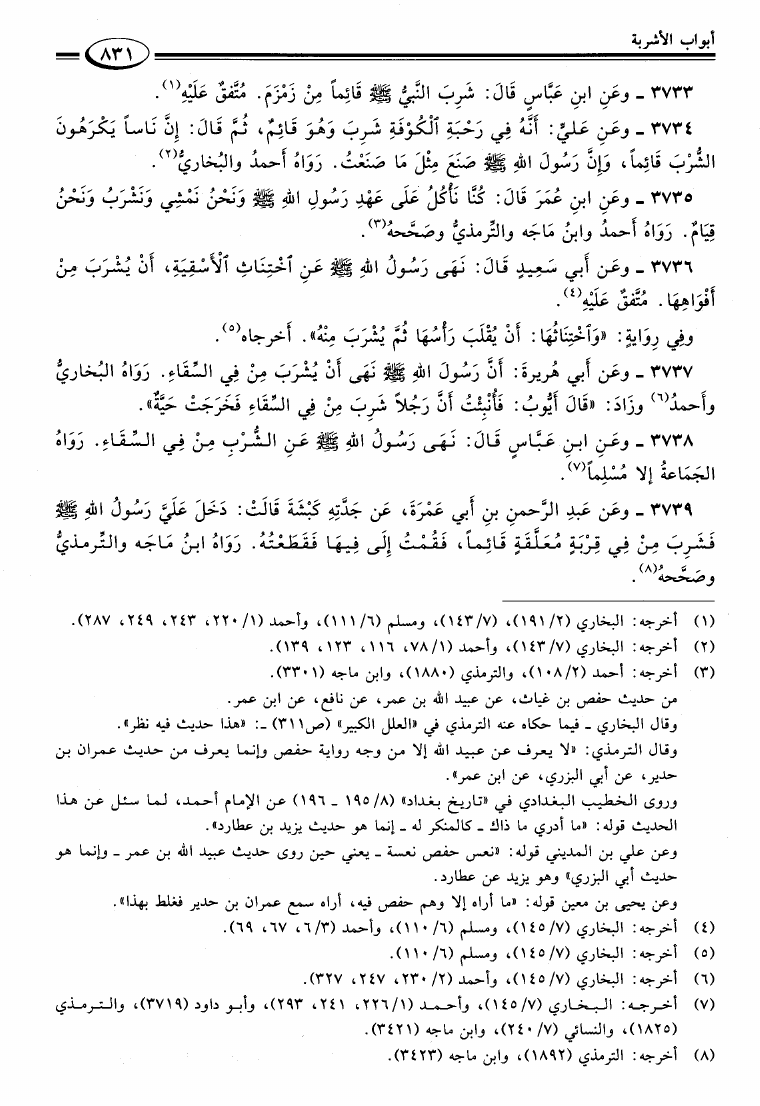 أبواب الأشربة
٨٣١
٣٧٣٣ ـ وعَنِ ابنِ عَبَّاسٍ قَالَ: شَرِبَ النَّبيُّ ﷺ قَائِماً مِنْ زَمْزَمَ. مُتَّفقٌ عَلَيْهِ(١).
٣٧٣٤ ـ وعَن عَليٍّ: أَنَّهُ فِي رَحْبَةِ ٱلْكُوفَةِ شَرِبَ وَهُوَ قَائِمٌ، ثُمَّ قَالَ: إِنَّ نَاساً يَكْرَهُونَ
الشُّرْبَ قَائِماً، وَإِنَّ رَسُولَ اللهِ ﷺ صَنَعَ مِثْلَ مَا صَنَعْتُ. رَوَاهُ أَحمدُ والبُخاريُّ(٢).
٣٧٣٥ ـ وعَنِ ابنِ عُمَرَ قَالَ: كُنَّا نَأْكُلُ عَلَى عَهْدِ رَسُولِ اللهِ ﷺ وَنَحْنُ نَمْشِي وَنَشْرَبُ وَنَحْنُ
قِيَامٌ. رَوَاهُ أَحمدُ وابنُ مَاجَه والتِّرمذيُّ وصَحَّحهُ(٣).
٣٧٣٦ ـ وعَن أَبي سَعِيدٍ قَالَ: نَهَى رَسُولُ اللهِ ﷺ عَنِ ٱخْتِنَاثِ ٱلْأَسْقِيَةِ، أَنْ يُشْرَبَ مِنْ
أَفْوَاهِهَا. مُتَّفقٌ عَلَيْهِ(٤).
وفِي رِوَايَةٍ: «وَٱخْتِنَاثُهَا: أَنْ يُقْلَبَ رَأْسُهَا ثُمَّ يُشْرَبَ مِنْهُ». أخرجاه(٥).
٣٧٣٧ ـ وعَن أَبي هُريرةَ: أَنَّ رَسُولَ اللهِ ﷺ نَهَى أَنْ يُشْرَبَ مِنْ فِي السِّقَاءِ. رَوَاهُ البُخاريُّ
وأَحمدُ(٦) وزَادَ: «قَالَ أَيُّوبُ: فَأُنْبِئْتُ أَنَّ رَجُلاً شَرِبَ مِنْ فِي السِّقَاءِ فَخَرَجَتْ حَيَّةٌ».
٣٧٣٨ ـ وعَنِ ابنِ عَبَّاسٍ قَالَ: نَهَى رَسُولُ اللهِ ﷺ عَنِ الشُّرْبِ مِنْ فِي السِّقَاءِ. رَوَاهُ
الجَمَاعةُ إلا مُسْلِماً(٧).
٣٧٣٩ ـ وعَن عَبدِ الرَّحمنِ بنِ أَبي عَمْرَةَ، عَن جَدَّتِهِ كَبْشَةَ قَالَتْ: دَخَلَ عَلَيَّ رَسُولُ اللهِ ﷺ
فَشَرِبَ مِنْ فِي قِرْبَةٍ مُعَلَّقَةٍ قَائِماً، فَقُمْتُ إِلَى فِيهَا فَقَطَعْتُهُ. رَوَاهُ ابنُ مَاجَه والتِّرمذيُّ
وصَحَّحهُ(٨).
(١) أخرجه: البخاري (١٩١/٢)، (١٤٣/٧)، ومسلم (١١١/٦)، وأحمد (٢٢٠/١، ٢٤٣، ٢٤٩، ٢٨٧).
(٢) أخرجه: البخاري (١٤٣/٧)، وأحمد (٧٨/١، ١١٦، ١٢٣، ١٣٩).
(٣) أخرجه: أحمد (١٠٨/٢)، والترمذي (١٨٨٠)، وابن ماجه (٣٣٠١).
من حديث حفص بن غياث، عن عبيد الله بن عمر، عن نافع، عن ابن عمر.
وقال البخاري ـ فيما حكاه عنه الترمذي في «العلل الكبير» (ص٣١١) ـ: «هذا حديث فيه نظر».
وقال الترمذي: «لا يعرف عن عبيد الله إلا من وجه رواية حفص وإنما يعرف من حديث عمران بن
حدير، عن أبي البزري، عن ابن عمر».
وروى الخطيب البغدادي في «تاريخ بغداد» (١٩٥/٨ ـ ١٩٦) عن الإمام أحمد، لما سئل عن هذا
الحديث قوله: «ما أدري ما ذاك ـ كالمنكر له ـ إنما هو حديث يزيد بن عطارد».
وعن علي بن المديني قوله: «نعس حفص نعسة ـ يعني حين روى حديث عبيد الله بن عمر ـ وإنما هو
حديث أبي البزري» وهو يزيد عن عطارد.
وعن يحيى بن معين قوله: «ما أراه إلا وهم حفص فيه، أراه سمع عمران بن حدير فغلط بهذا».
(٤) أخرجه: البخاري (١٤٥/٧)، ومسلم (١١٠/٦)، وأحمد (٦/٣، ٦٧، ٦٩).
(٥) أخرجه: البخاري (١٤٥/٧)، ومسلم (١١٠/٦).
(٦) أخرجه: البخاري (١٤٥/٧)، وأحمد (٢٣٠/٢، ٢٤٧، ٣٢٧).
(٧) أخرجه: البخاري (١٤٥/٧)، وأحمد (٢٢٦/١، ٢٤١، ٢٩٣)، وأبو داود (٣٧١٩)، والترمذي
(١٨٢٥)، والنسائي (٢٤٠/٧)، وابن ماجه (٣٤٢١).
(٨) أخرجه: الترمذي (١٨٩٢)، وابن ماجه (٣٤٢٣).